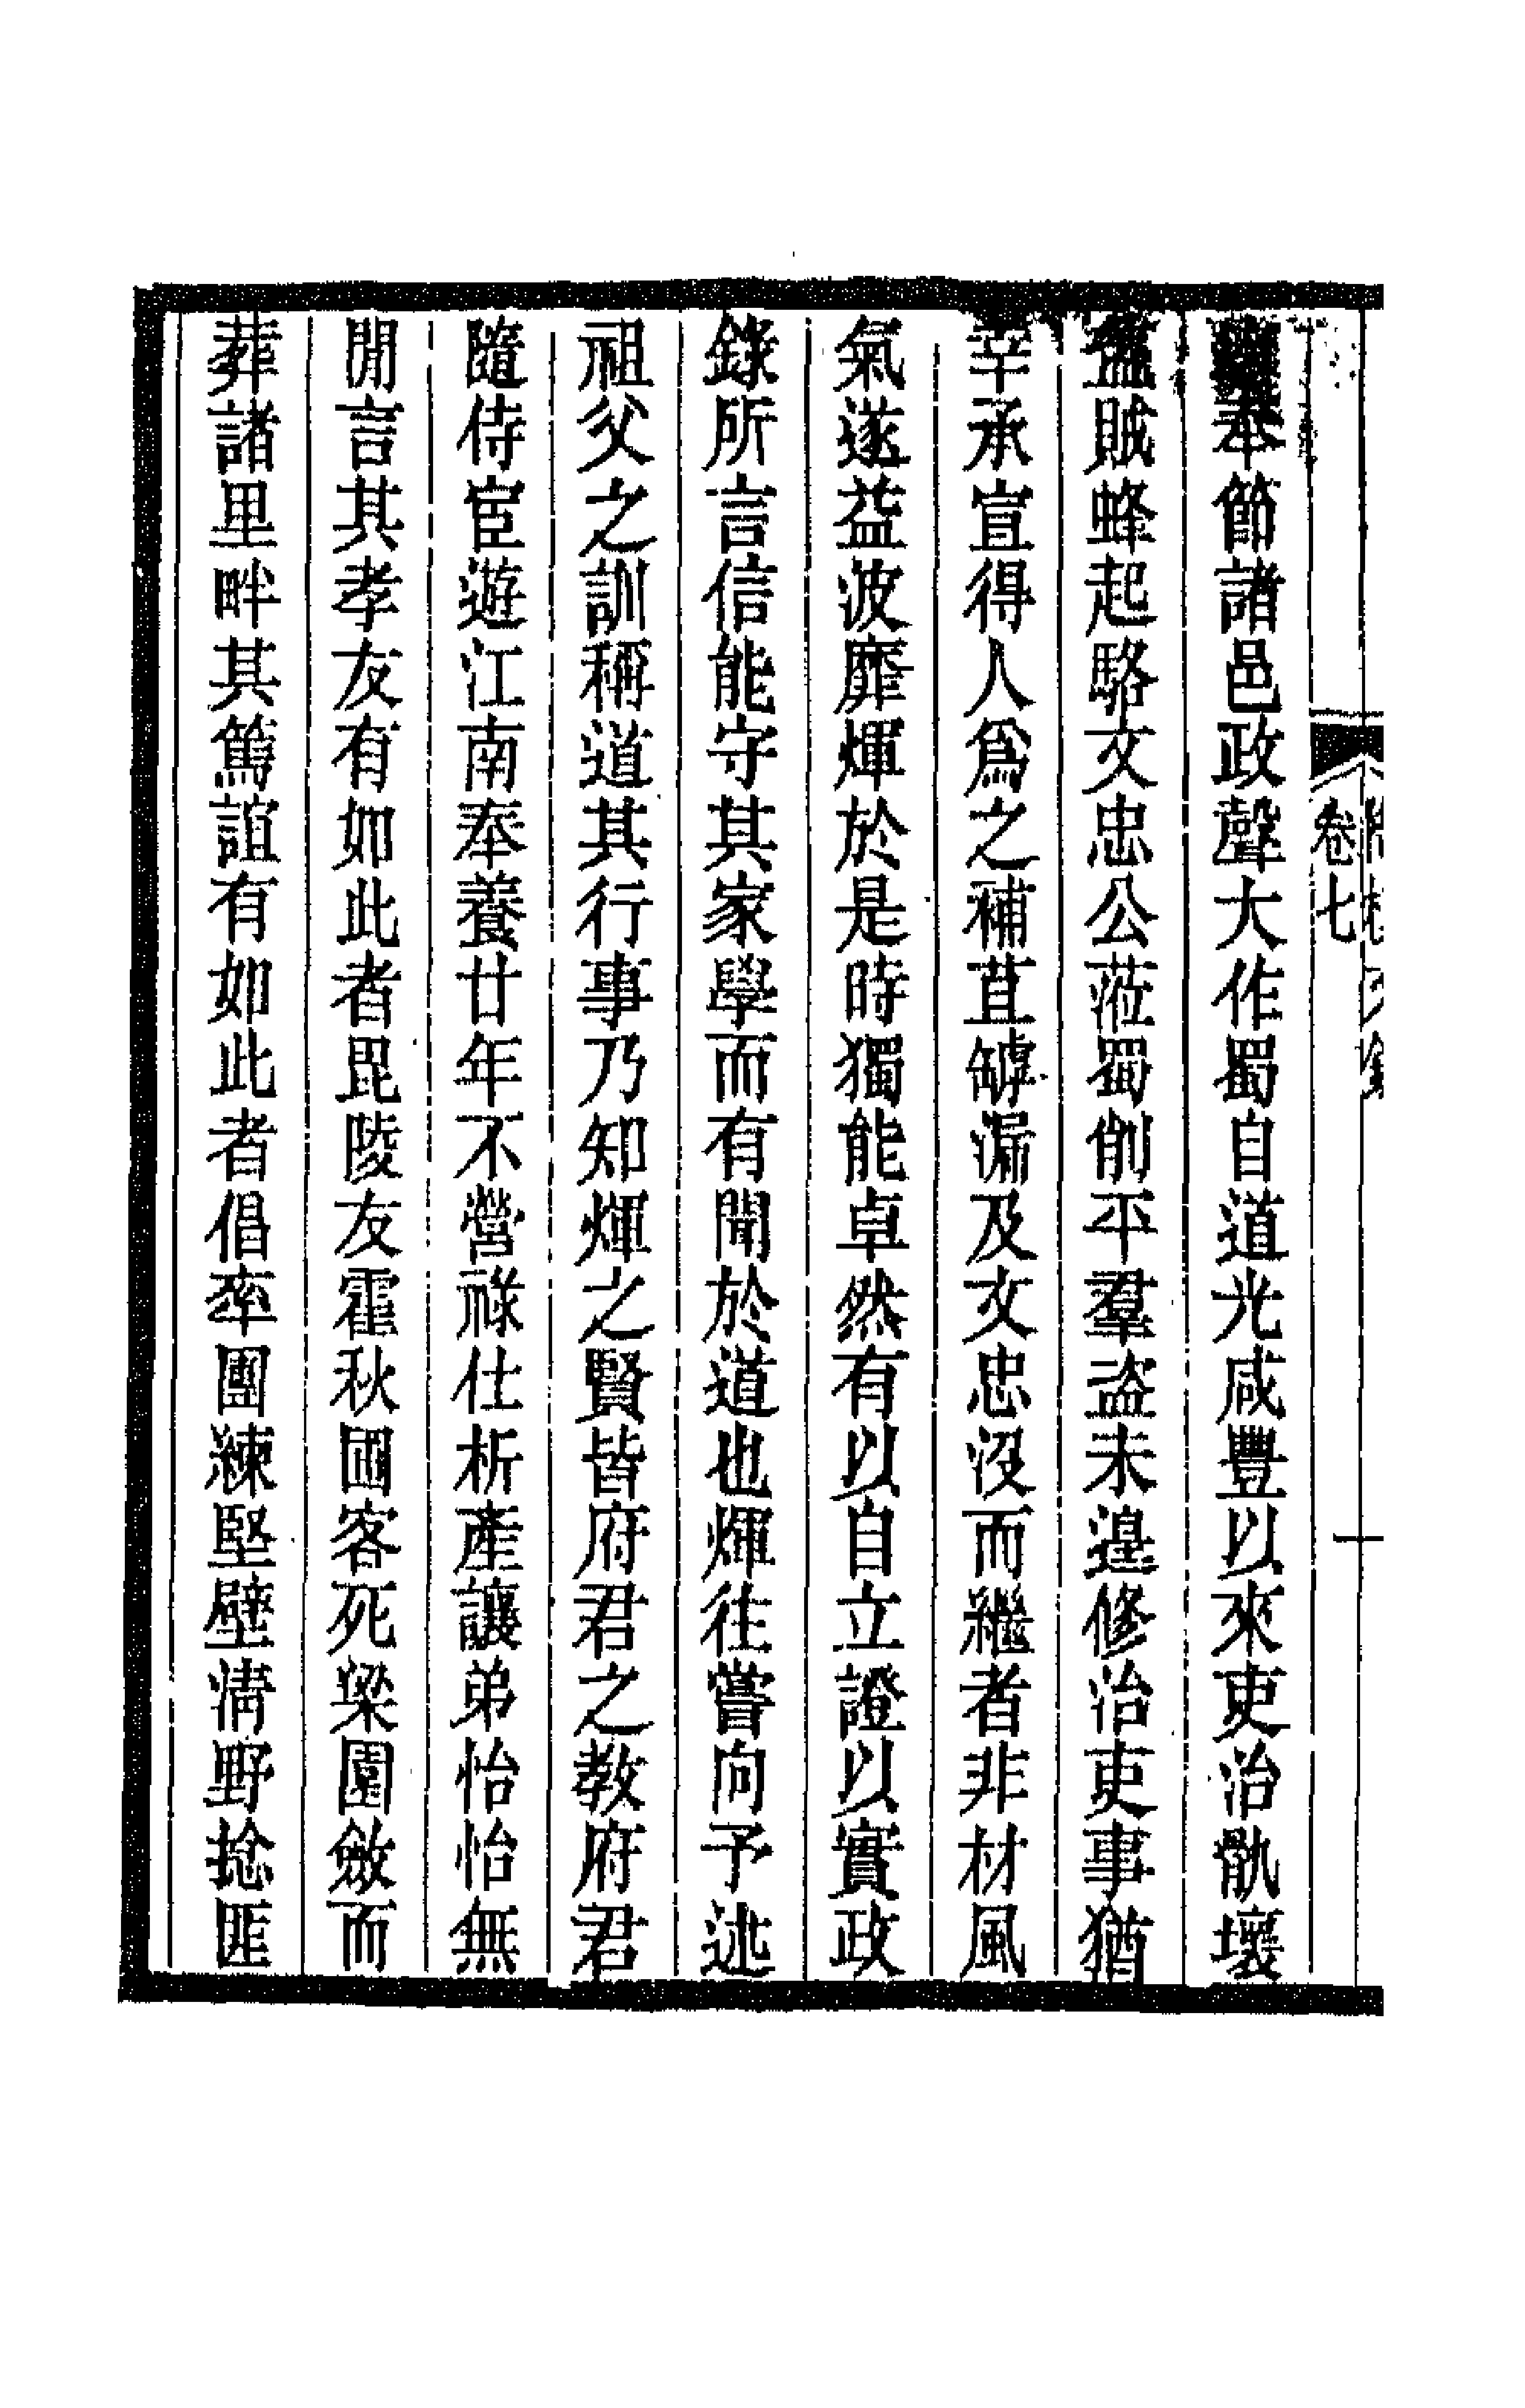 卷七
奉節諸邑政聲大作蜀自道光咸豐以來吏治骫壞
盜賊蜂起駱文忠公蒞蜀削平羣盜未遑修治吏事猶
幸承宣得人爲之補苴罅漏及文忠沒而繼者非材風
氣遂益波靡煇於是時獨能卓然有以自立證以實政
錄所言信能守其家學而有聞於道也煇往嘗向予述
祖父之訓稱道其行事乃知煇之賢皆府君之教府君
隨侍宦遊江南奉養廿年不營祿仕析產讓弟怡怡無
閒言其孝友有如此者毘陵友霍秋圃客死梁園斂而
葬諸里畔其篤誼有如此者倡率團練堅壁清野捻匪